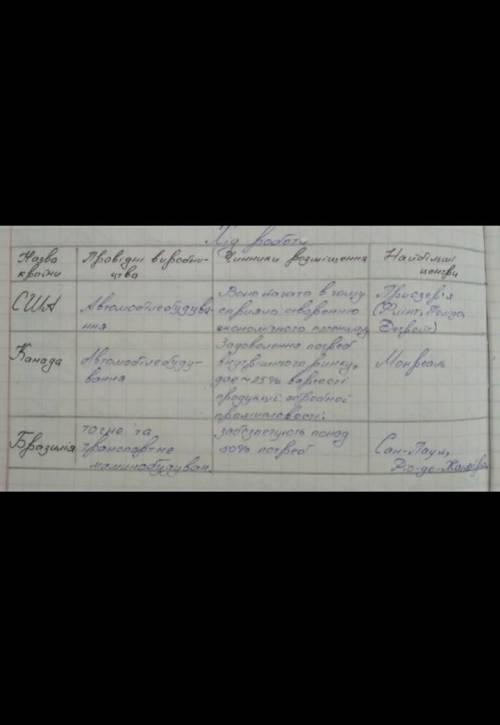 Хід роботи
Назва країни
Провідні виробни-
цтва
Чинники розміщення
Найбільші центри
США
Автомобілебудува-
ння
Воно багато в чому
сприяло створенню
економічного
Приозер'я
(Флінт,
Детройт)
Канада
Автомобілебуду-
вання
Задоволення потреб
внутрішнього ринку,
дає ≈25% вартості
продукції обробної
промисловості;
Монреаль
Бразилія
точне та
транспортне
машинобудуван.
забезпечують понад
90% потреб
Сан-Паулу,
Ріо-де-Жанейро